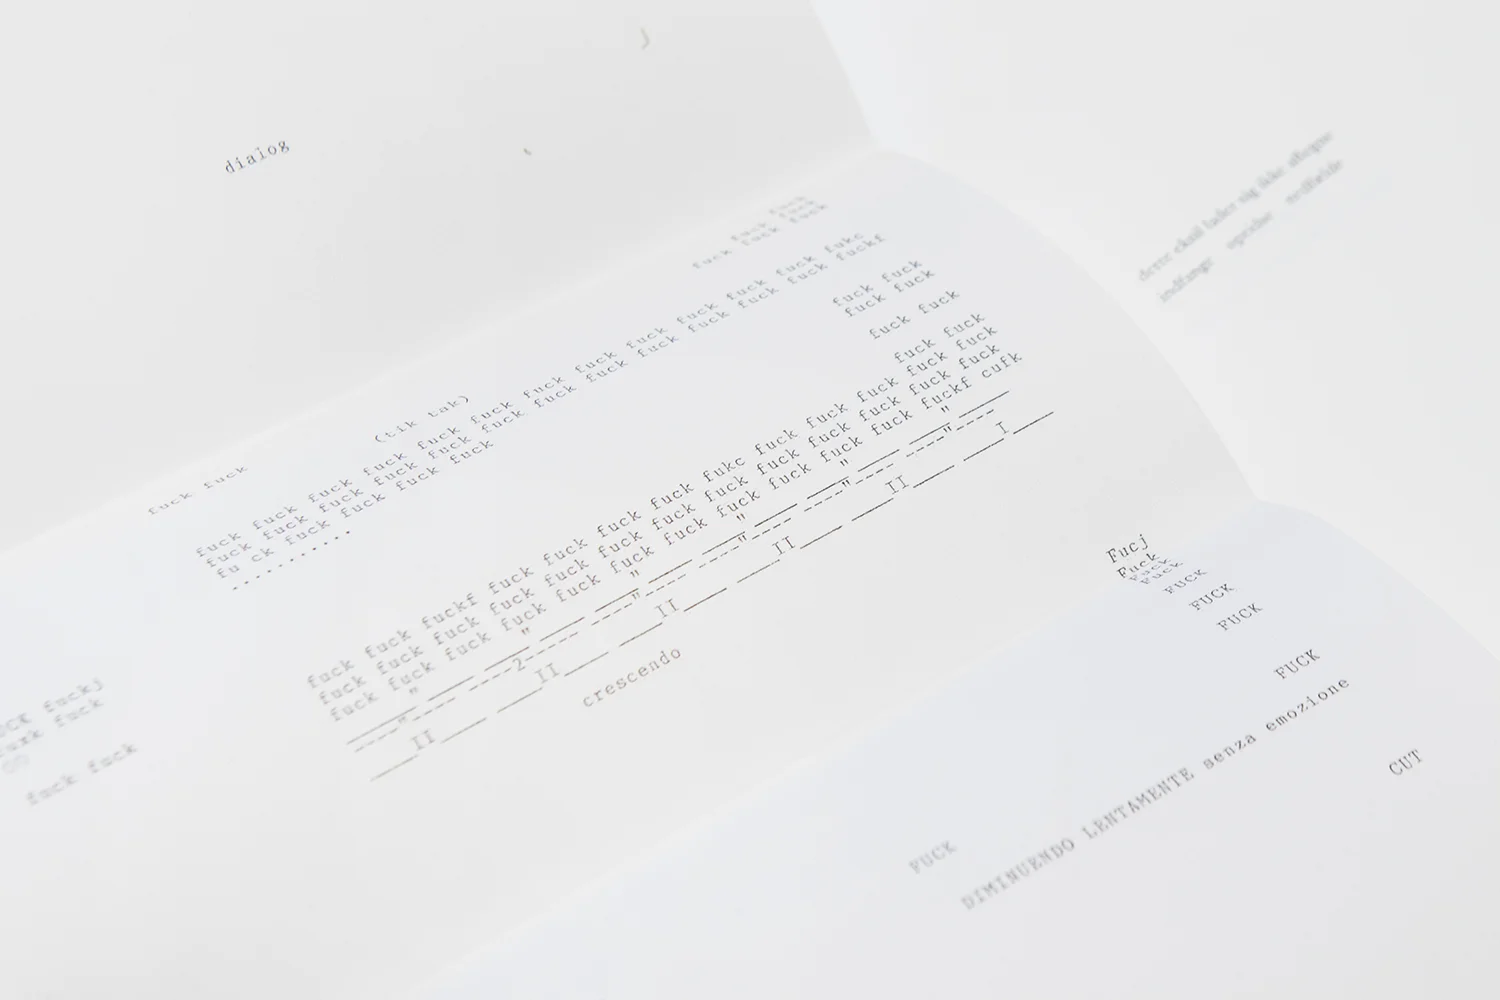 dialog
fuck fuck
fuck fuck
fuck fuck fuck
fuck fuck
(tik tak)
fuck fuck fuck fuck fuck fuck fuck fuck fuck fuck fuck fuck fukc
fuck fuck fuck fuck fuck fuck fuck fuck fuck fuck fuck fuck fuckf
fu ck fuck fuck fuck fuck
............
fuck fuck
fuck fuck
fuck fuck
fuck fuck
fuck fuck fuckf fuck fuck fuck fuck fukc fuck fuck fuck fuck fuck
fuck fuck fuck fuck fuck fuck fuck fuck fuck fuck fuck fuck fuck
fuck fuck fuck fuck fuck fuck fuck fuck fuck fuck fuck fuckf cufk
crescendo
fuckj
fuck
fuck fuck
Fucj
Fuck
Fuck
Fuck
FUCK
FUCK
FUCK
FUCK
FUCK
DIMINUENDO LENTAMENTE senza emozione
CUT
dette skal lader sig ikke aftegne
indfange